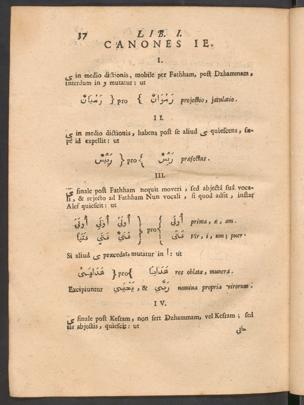 37 LIB. I.
CANONES IE.
I.
ي in medio dictionis, mobile per Fathham, post Dzhammam,
interdum in و mutatur: ut
رَمُيَانٌ } pro { رَمُوَانٌ projectio, jaculatio.
II.
ي in medio dictionis, habens post se aliud ي quiescens, sæ-
pe id expellit: ut
رَيِّسٌ } pro { præfectus.
III.
ي finale post Fathham nequit moveri, sed abjectâ suâ voca-
li, & rejecto ad Fathham Nun vocali, si quod adsit, instar
Alef quiescit: ut
أُولَى أُولَى أُولَى } pro { prima, æ, am.
vir, i, um; puer.
Si aliud ي præcedat, mutatur in ا: ut
} pro { هَدَايَا res oblatæ, munera.
Excipiuntur يَحْيَى, & nomina propria virorum.
IV.
ي finale post Kesram, non fert Dzhammam, vel Kesram; sed
iis abjectis, quiescit: ut